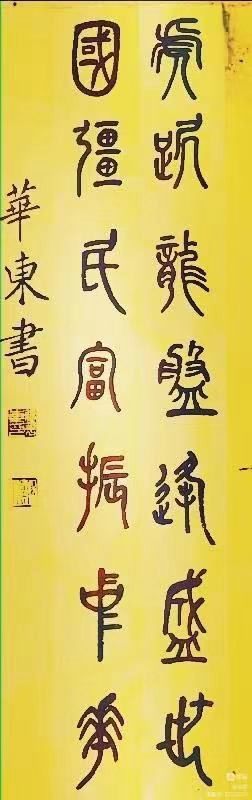 虎踞龍盤逢盛世
國彊民富振中華
華東書